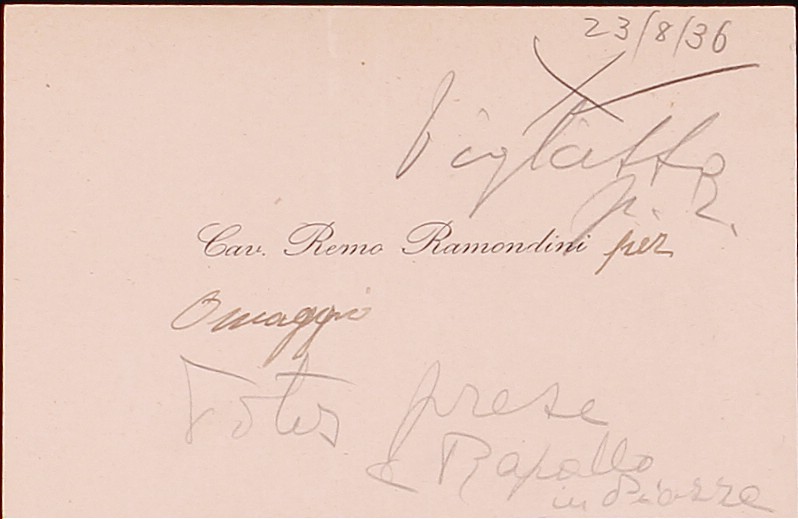 23/8/36
Biglietto
p. r.
Cav. Remo Ramondini per
Omaggio
Foto prese
a Rapallo
in Piazza